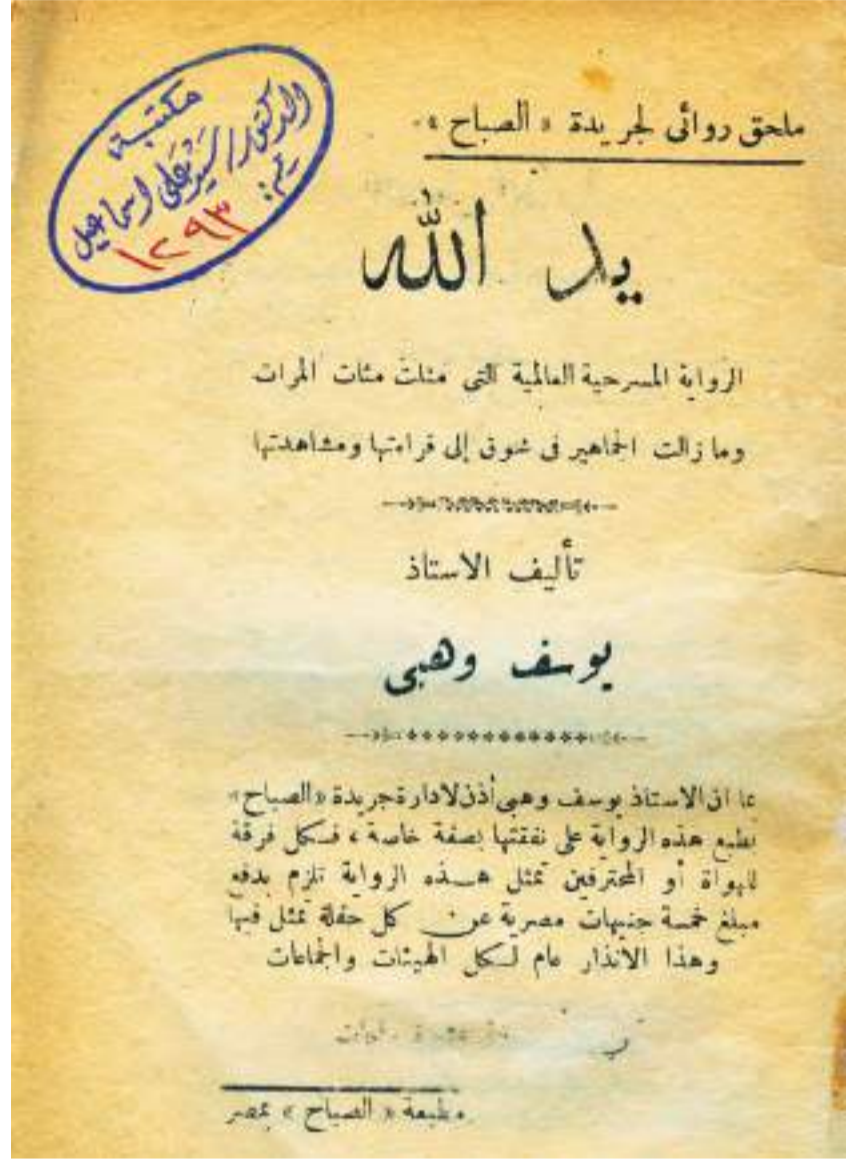 مكتبة
الدكتور / سيد علي اسماعيل
رقم:
١٢٩٣
ملحق روائى لجريدة «الصباح»
يد الله
الرواية المسرحية العالمية التى مثلت مئات المرات
وما زالت الجماهير فى شوق إلى قراءتها ومشاهدتها
تأليف الاستاذ
يوسف وهبى
بما ان الاستاذ يوسف وهبى أذن لادارة جريدة «الصباح»
بطبع هذه الرواية على نفقتها بصفة خاصة ، فسكل فرقة
للهواة أو المحترفين تمثل هـــذه الرواية تلزم بدفع
مبلغ خمسة جنيهات مصرية عن كل حفلة تمثل فيها
وهذا الانذار عام لسكل الهيئات والجماعات
مطبعة «الصباح» بمصر